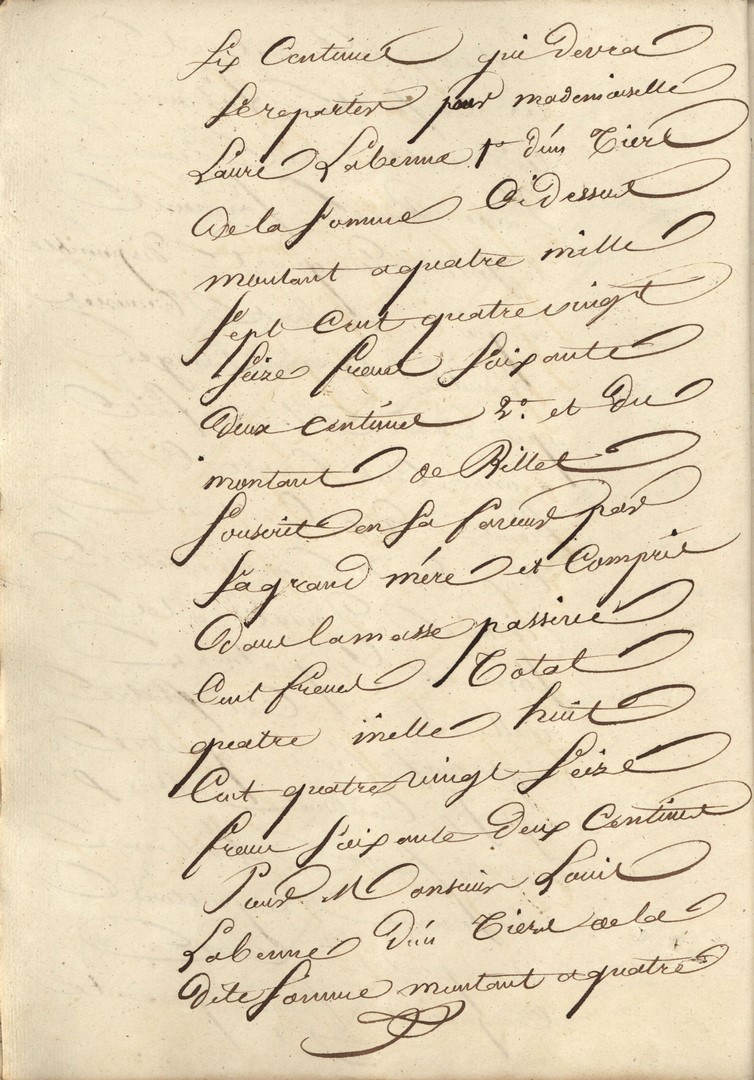 six Centimes qui devra
se reporter pour mademoiselle
Laure Labenne 1° d'un Tiers
de la somme Ci dessus
montant a quatre mille
sept Cent quatre vingt
seize francs soixante
deux centimes 2° et du
montant de Billet
souscrit en sa faveur par
sa grand mère et Compris
dans la masse passive
Cent francs Total
quatre mille huit
Cent quatre vingt seize
francs soixante deux Centimes
Pour Monsieur Louis
Labenne d'un Tiers de la
dite somme montant a quatre